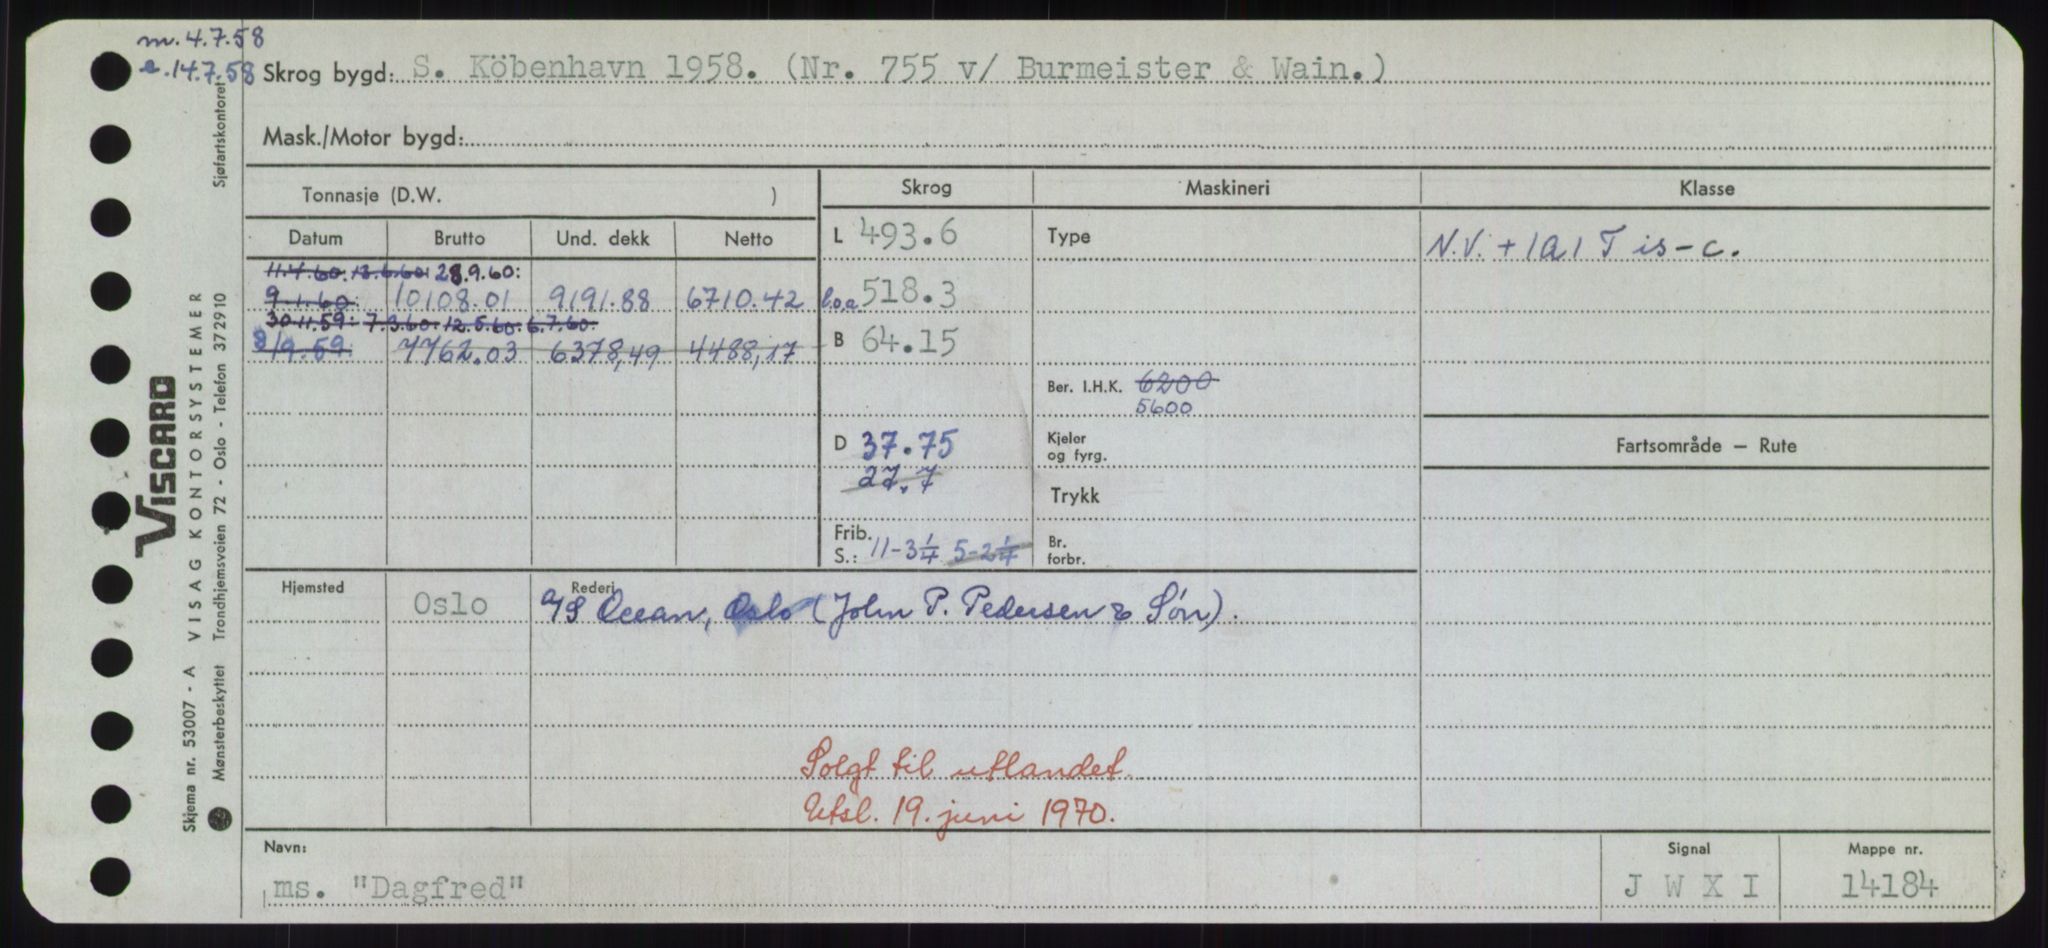 m. 4.7.58
e. 14.7.58 Skrog bygd: S. Köbenhavn 1958. (Nr. 755 v/ Burmeister & Wain.)
Mask./Motor bygd:
Tonnasje (D.W. ) Skrog Maskineri Klasse
Datum Brutto Und. dekk Netto L 493.6 Type N.V. + 1A1 T is-c.
11.4.60. 13.6.60. 28.9.60:
9.1.60: 10108.01 9191.88 6710.42 l.o.a 518.3
30.11.59: 7.3.60. 12.5.60. 6.7.60.
8/9.59 7762.03 6378,49 4488,17 B 64.15
Ber. I.H.K. 6200
5600
D 37.75 Kjeler
og fyrg. Fartsområde – Rute
27.7
Trykk
Frib.
S.: 11-3¼ 5-2¼ Br.
forbr.
Hjemsted Oslo Rederi A/S Ocean, Oslo (John P. Pedersen & Søn).
Solgt til utlandet.
Utsl. 19. juni 1970.
Navn: Signal Mappe nr.
ms. "Dagfred" J W X I 14184
Skjema nr. 53007 - A VISAG KONTORSYSTEMER
VISCARD
Mønsterbeskyttet Trondhjemsveien 72 - Oslo - Telefon 372910 Sjøfartskontoret